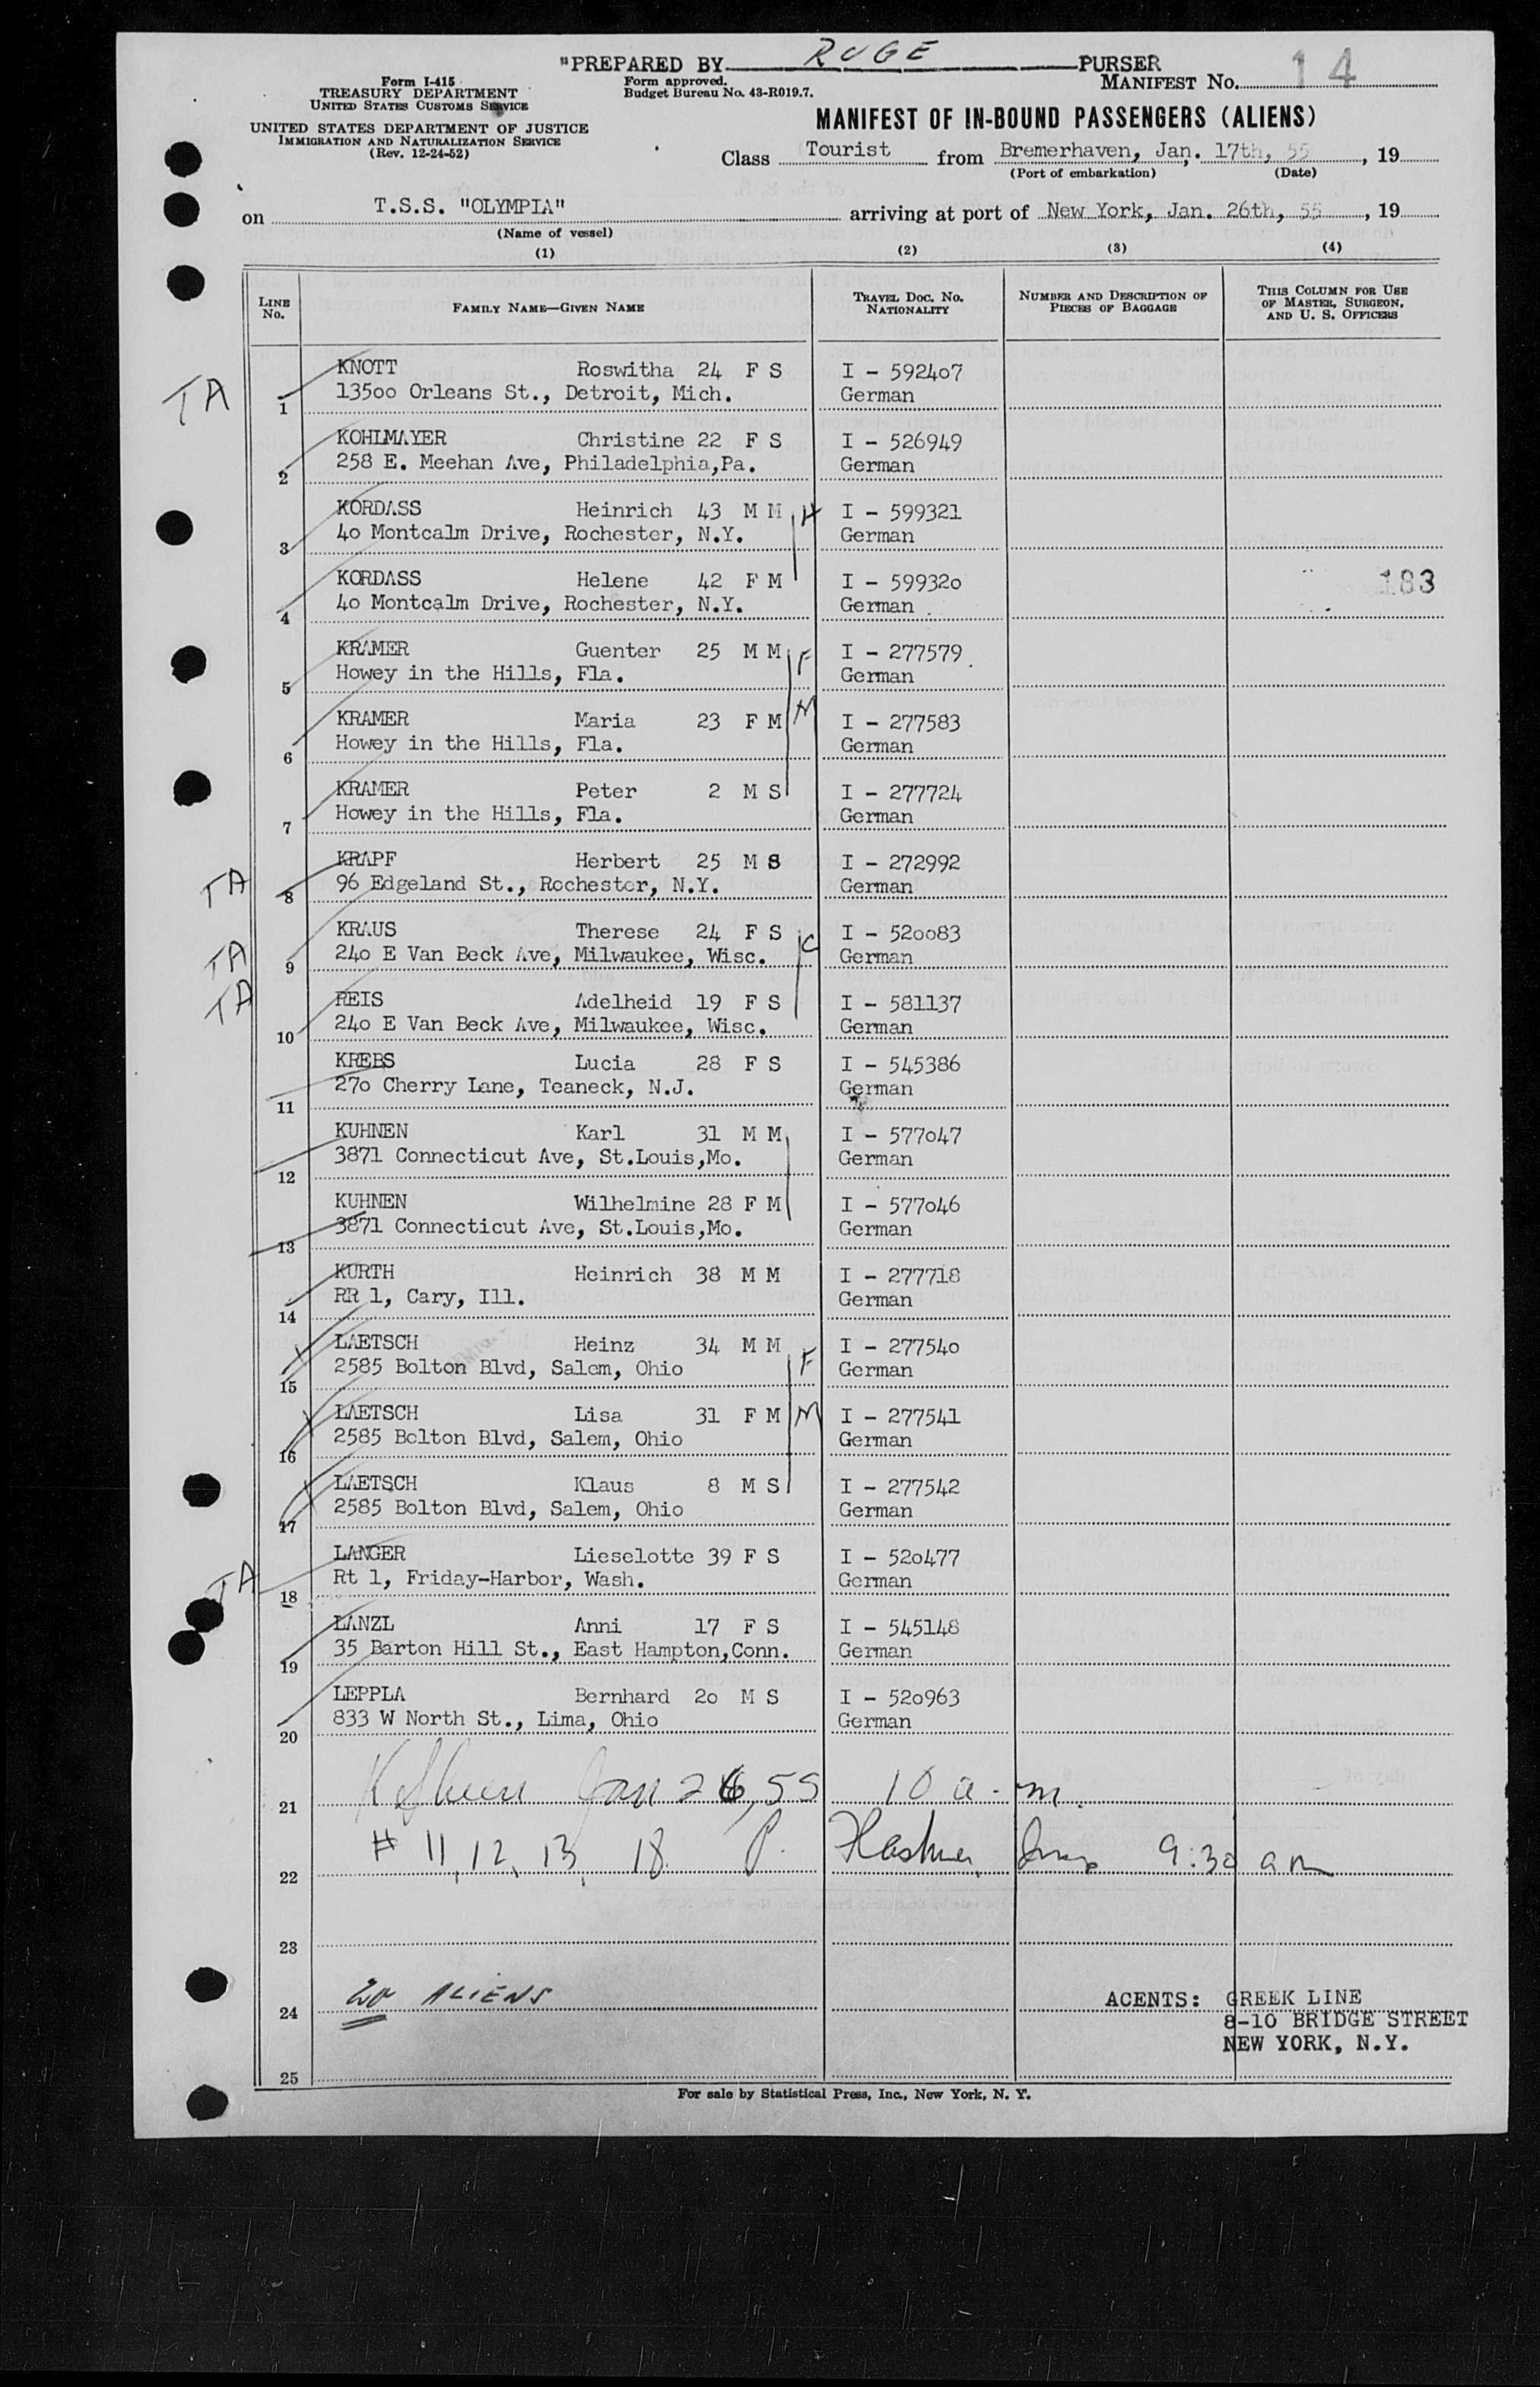 "PREPARED BY RUGE PURSER
Form I-415
TREASURY DEPARTMENT
UNITED STATES CUSTOMS SERVICE
Form approved.
Budget Bureau No. 43-R019.7.
MANIFEST No. 14
UNITED STATES DEPARTMENT OF JUSTICE
IMMIGRATION AND NATURALIZATION SERVICE
(Rev. 12-24-52)
MANIFEST OF IN-BOUND PASSENGERS (ALIENS)
Class Tourist from Bremerhaven, Jan. 17th, 55, 19
(Port of embarkation) (Date)
on T.S.S. "OLYMPIA" arriving at port of New York, Jan. 26th, 55, 19
(Name of vessel)
(1) (2) (3) (4)
LINE No. FAMILY NAME—GIVEN NAME TRAVEL DOC. No. NATIONALITY NUMBER AND DESCRIPTION OF PIECES OF BAGGAGE THIS COLUMN FOR USE OF MASTER, SURGEON, AND U. S. OFFICERS
KNOTT Roswitha 24 F S I - 592407
TA 1 13500 Orleans St., Detroit, Mich. German
KOHLMAYER Christine 22 F S I - 526949
2 258 E. Meehan Ave, Philadelphia,Pa. German
KORDASS Heinrich 43 M M H I - 599321
3 40 Montcalm Drive, Rochester, N.Y. German
KORDASS Helene 42 F M I - 599320 183
4 40 Montcalm Drive, Rochester, N.Y. German
KRAMER Guenter 25 M M F I - 277579
5 Howey in the Hills, Fla. German
KRAMER Maria 23 F M M I - 277583
6 Howey in the Hills, Fla. German
KRAMER Peter 2 M S I - 277724
7 Howey in the Hills, Fla. German
KRAPF Herbert 25 M S I - 272992
TA 8 96 Edgeland St., Rochester, N.Y. German
KRAUS Therese 24 F S C I - 520083
TA 9 240 E Van Beck Ave, Milwaukee, Wisc. German
REIS Adelheid 19 F S I - 581137
TA 10 240 E Van Beck Ave, Milwaukee, Wisc. German
KREBS Lucia 28 F S I - 545386
11 270 Cherry Lane, Teaneck, N.J. German
KUHNEN Karl 31 M M I - 577047
12 3871 Connecticut Ave, St.Louis,Mo. German
KUHNEN Wilhelmine 28 F M I - 577046
13 3871 Connecticut Ave, St.Louis,Mo. German
KURTH Heinrich 38 M M I - 277718
14 RR 1, Cary, Ill. German
LAETSCH Heinz 34 M M F I - 277540
15 2585 Bolton Blvd, Salem, Ohio German
LAETSCH Lisa 31 F M M I - 277541
16 2585 Bolton Blvd, Salem, Ohio German
LAETSCH Klaus 8 M S I - 277542
17 2585 Bolton Blvd, Salem, Ohio German
LANGER Lieselotte 39 F S I - 520477
TA 18 Rt 1, Friday-Harbor, Wash. German
LANZL Anni 17 F S I - 545148
19 35 Barton Hill St., East Hampton,Conn. German
LEPPLA Bernhard 20 M S I - 520963
20 833 W North St., Lima, Ohio German
21 Jan 26, 55 10 a.m.
22 # 11, 12, 13, 18 P. 9:30 am
23
24 20 ALIENS AGENTS: GREEK LINE
8-10 BRIDGE STREET
NEW YORK, N.Y.
25
For sale by Statistical Press, Inc., New York, N. Y.